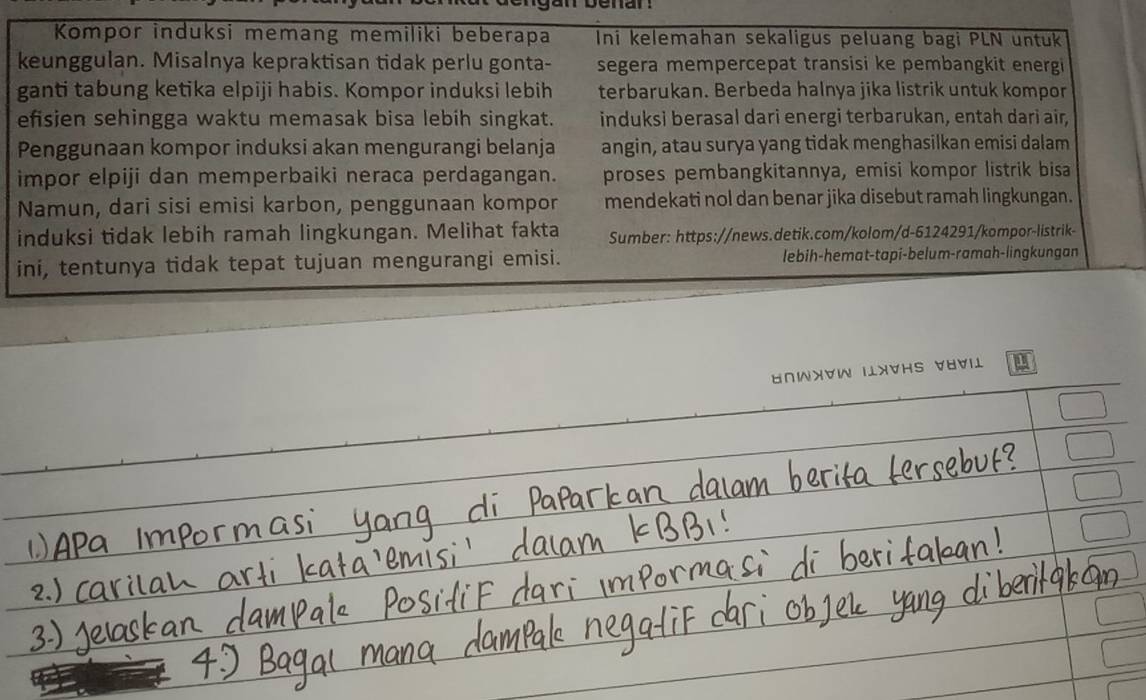 Kompor induksi memang memiliki beberapa
keunggulan. Misalnya kepraktisan tidak perlu gonta-
ganti tabung ketika elpiji habis. Kompor induksi lebih
efisien sehingga waktu memasak bisa lebih singkat.
Penggunaan kompor induksi akan mengurangi belanja
impor elpiji dan memperbaiki neraca perdagangan.
Namun, dari sisi emisi karbon, penggunaan kompor
induksi tidak lebih ramah lingkungan. Melihat fakta
ini, tentunya tidak tepat tujuan mengurangi emisi.
Ini kelemahan sekaligus peluang bagi PLN untuk
segera mempercepat transisi ke pembangkit energi
terbarukan. Berbeda halnya jika listrik untuk kompor
induksi berasal dari energi terbarukan, entah dari air,
angin, atau surya yang tidak menghasilkan emisi dalam
proses pembangkitannya, emisi kompor listrik bisa
mendekati nol dan benar jika disebut ramah lingkungan.
Sumber: https://news.detik.com/kolom/d-6124291/kompor-listrik-
lebih-hemat-tapi-belum-ramah-lingkungan
TIARA SHAKTI MAKMUR
1.) Apa impormasi yang di paparkan dalam berita tersebut?
2.) carilah arti kata 'emisi' dalam KBBI!
3.) jelaskan dampak positif dari impormasi di beritakan!
4.) Bagai mana dampak negatif dari objek yang diberitakan